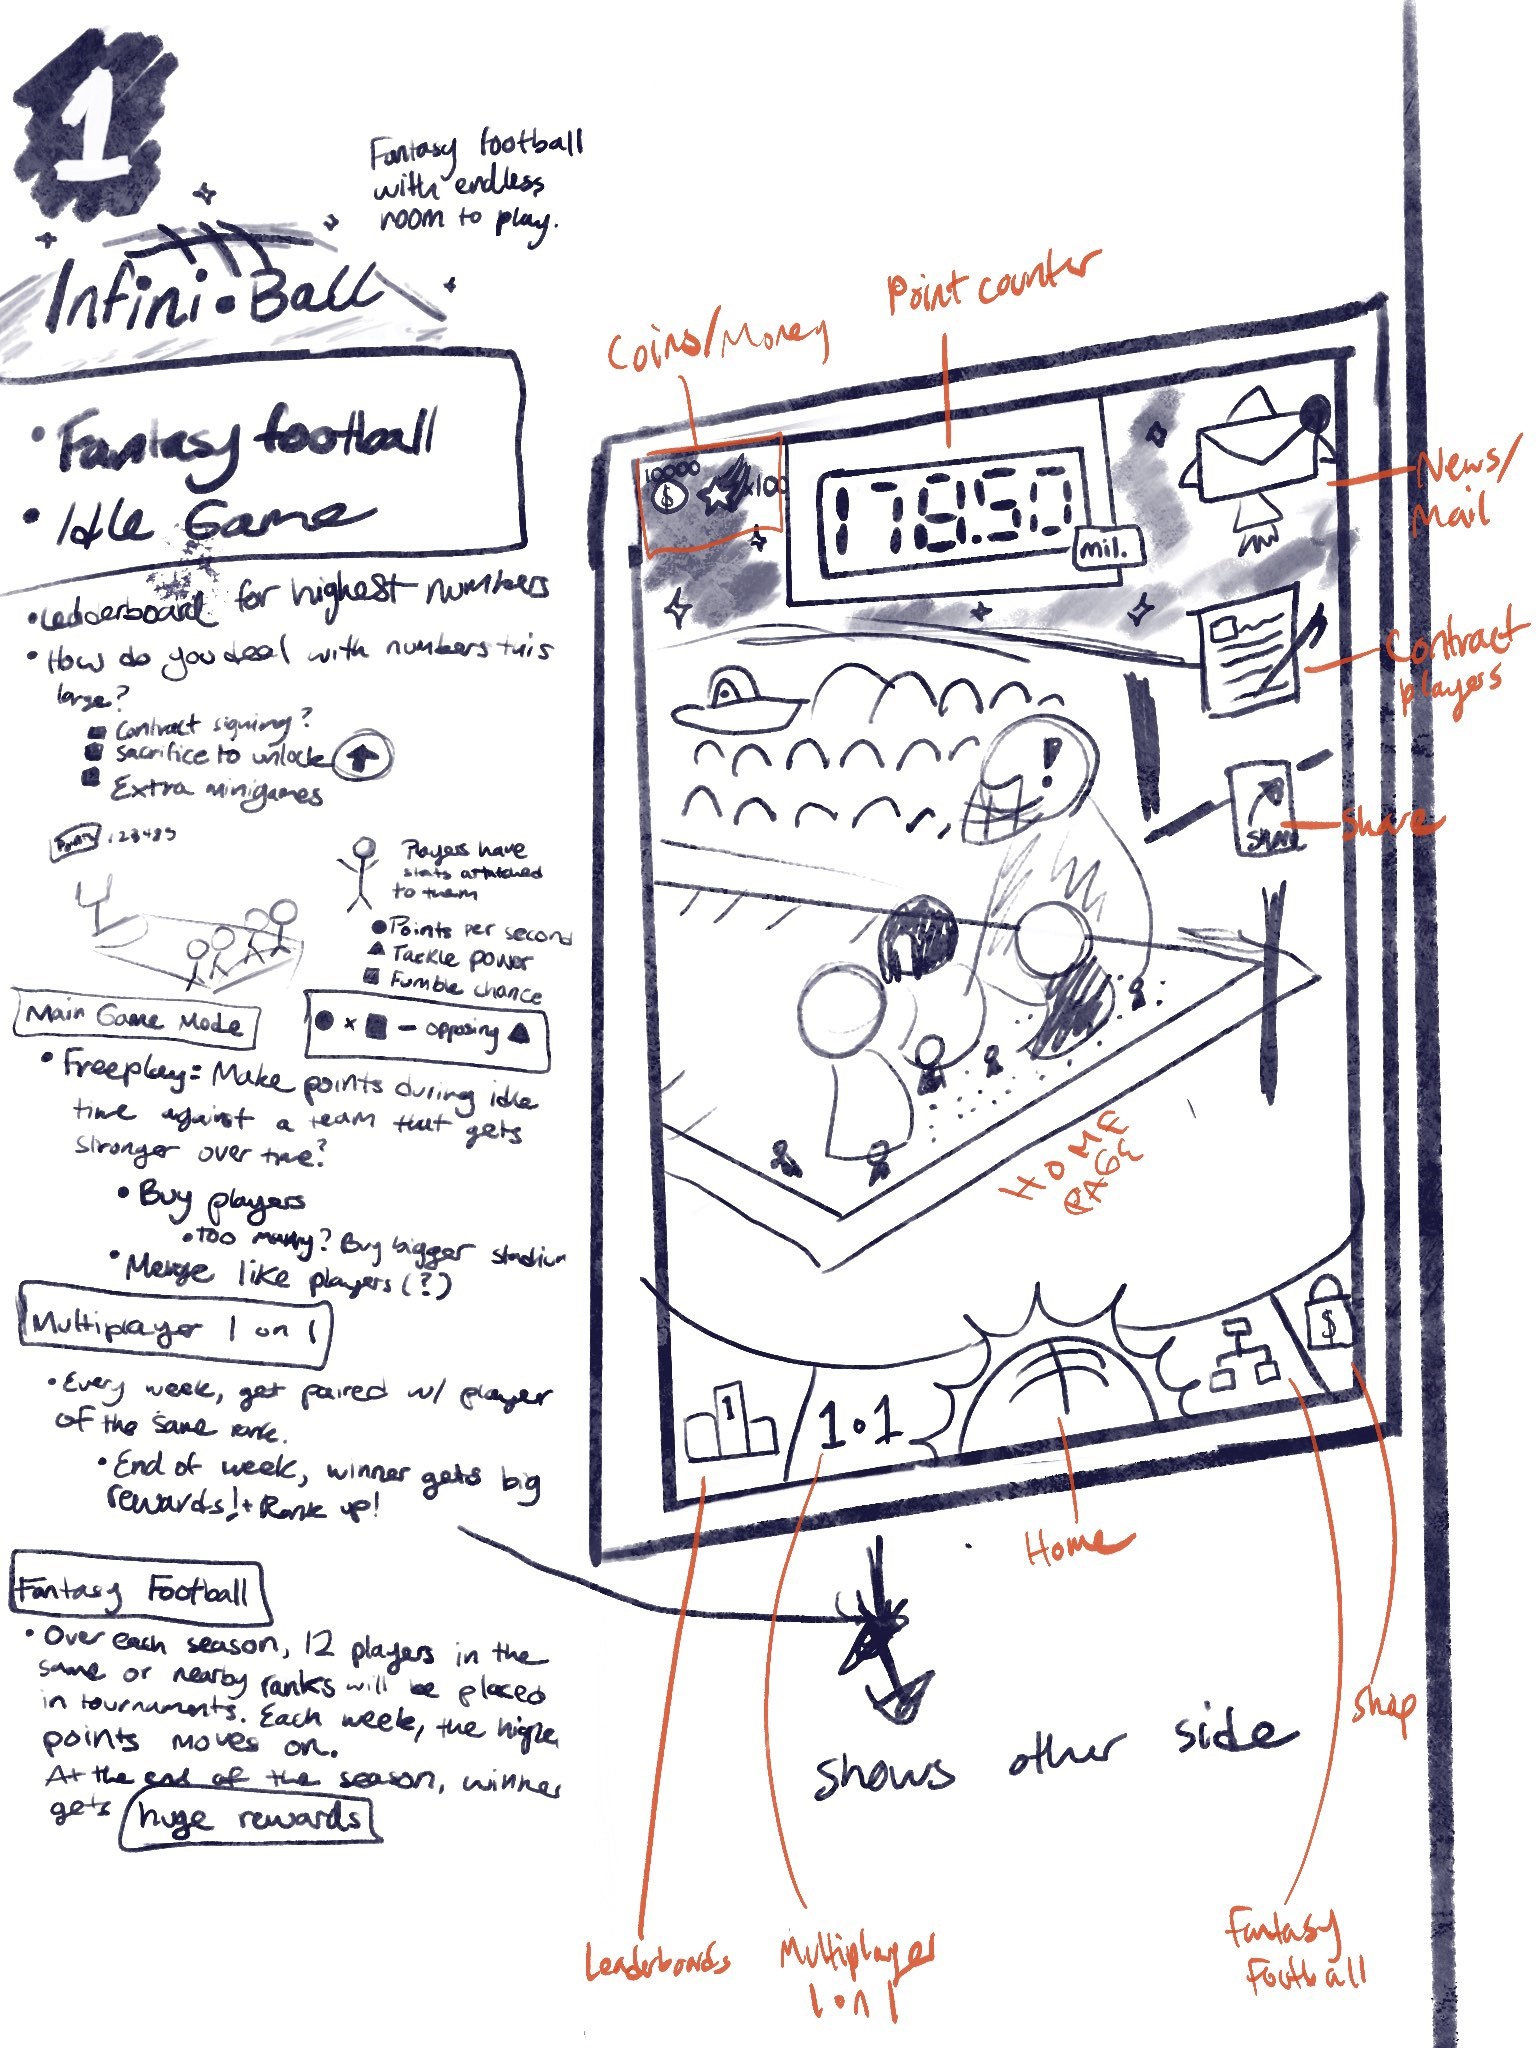 1
Fantasy football
with endless
room to play.
Infini•Ball
• Fantasy football
• Idle Game
• Leaderboard for highest numbers
• How do you deal with numbers this
large?
Contract signing?
Sacrifice to unlock
Extra minigames
Points 123485
Players have
stats attatched
to them
Points per second
Tackle power
Fumble chance
Main Game Mode
● x ■ - opposing ▲
• Freeplay: Make points during idle
time against a team that gets
stronger over time?
• Buy players
• Too many? Buy bigger stadium
• Merge like players (?)
Multiplayer 1 on 1
• Every week, get paired w/ player
of the same rank.
• End of week, winner gets big
rewards! + Rank up!
Fantasy Football
• Over each season, 12 players in the
same or nearby ranks will be placed
in tournaments. Each week, the higher
points moves on.
At the end of the season, winner
gets huge rewards
Coins/Money
Point counter
10000
$
x100
178.50
mil.
News/
Mail
Contract
players
!
SHARE
Share
HOME
PAGE
1
1•1
$
Home
shows other side
Shop
Leaderboards
Multiplayer
1 on 1
Fantasy
Football